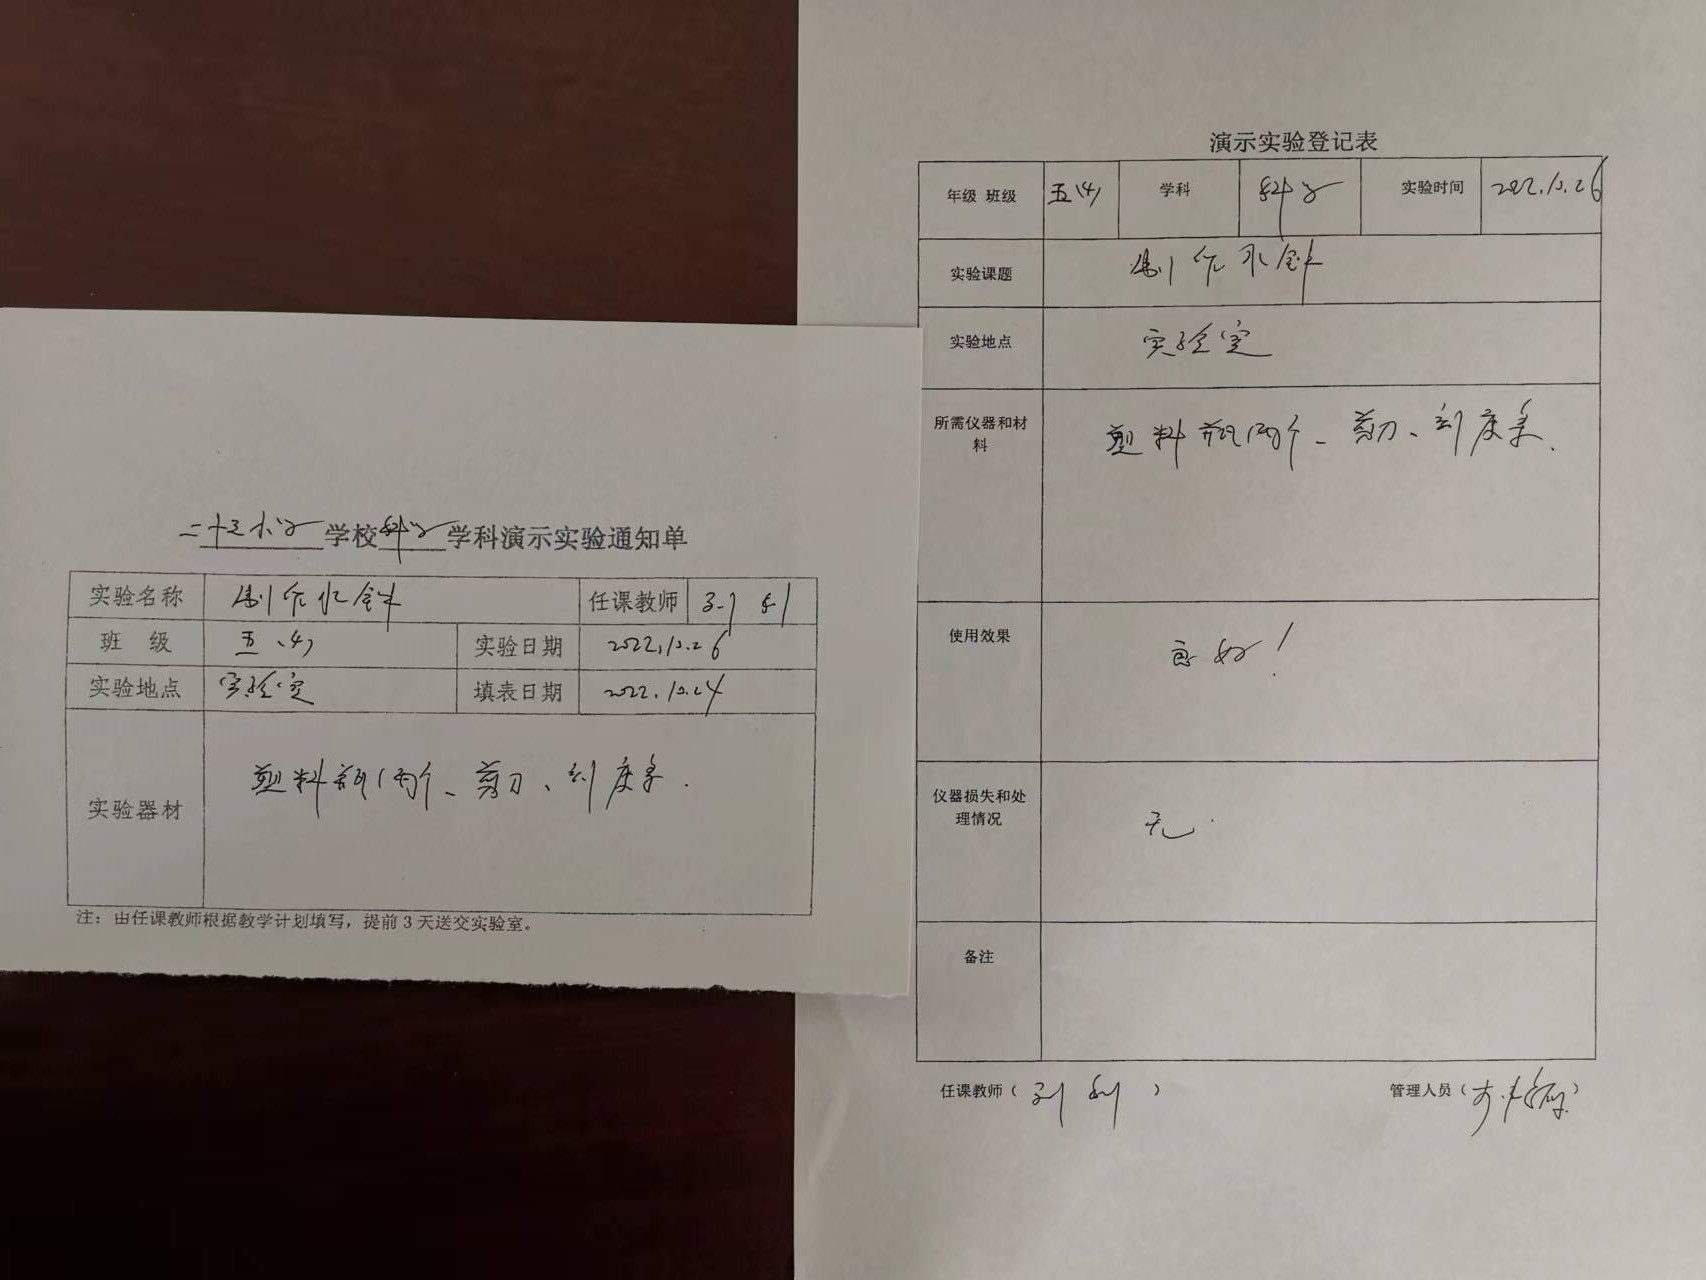 二十三小学学校科学学科演示实验通知单
实验名称 制作水钟 任课教师 刘利
班 级 五、(4) 实验日期 2022.10.26
实验地点 实验室 填表日期 2022.10.24
实验器材 塑料瓶两个、剪刀、刻度条.
注：由任课教师根据教学计划填写，提前3天送交实验室。
演示实验登记表
年级 班级 五(4) 学科 科学 实验时间 2022.10.26
实验课题 制作水钟
实验地点 实验室
所需仪器和材
料 塑料瓶两个、剪刀、刻度条.
使用效果 良好!
仪器损失和处
理情况 无.
备注
任课教师( 刘利 ) 管理人员( )